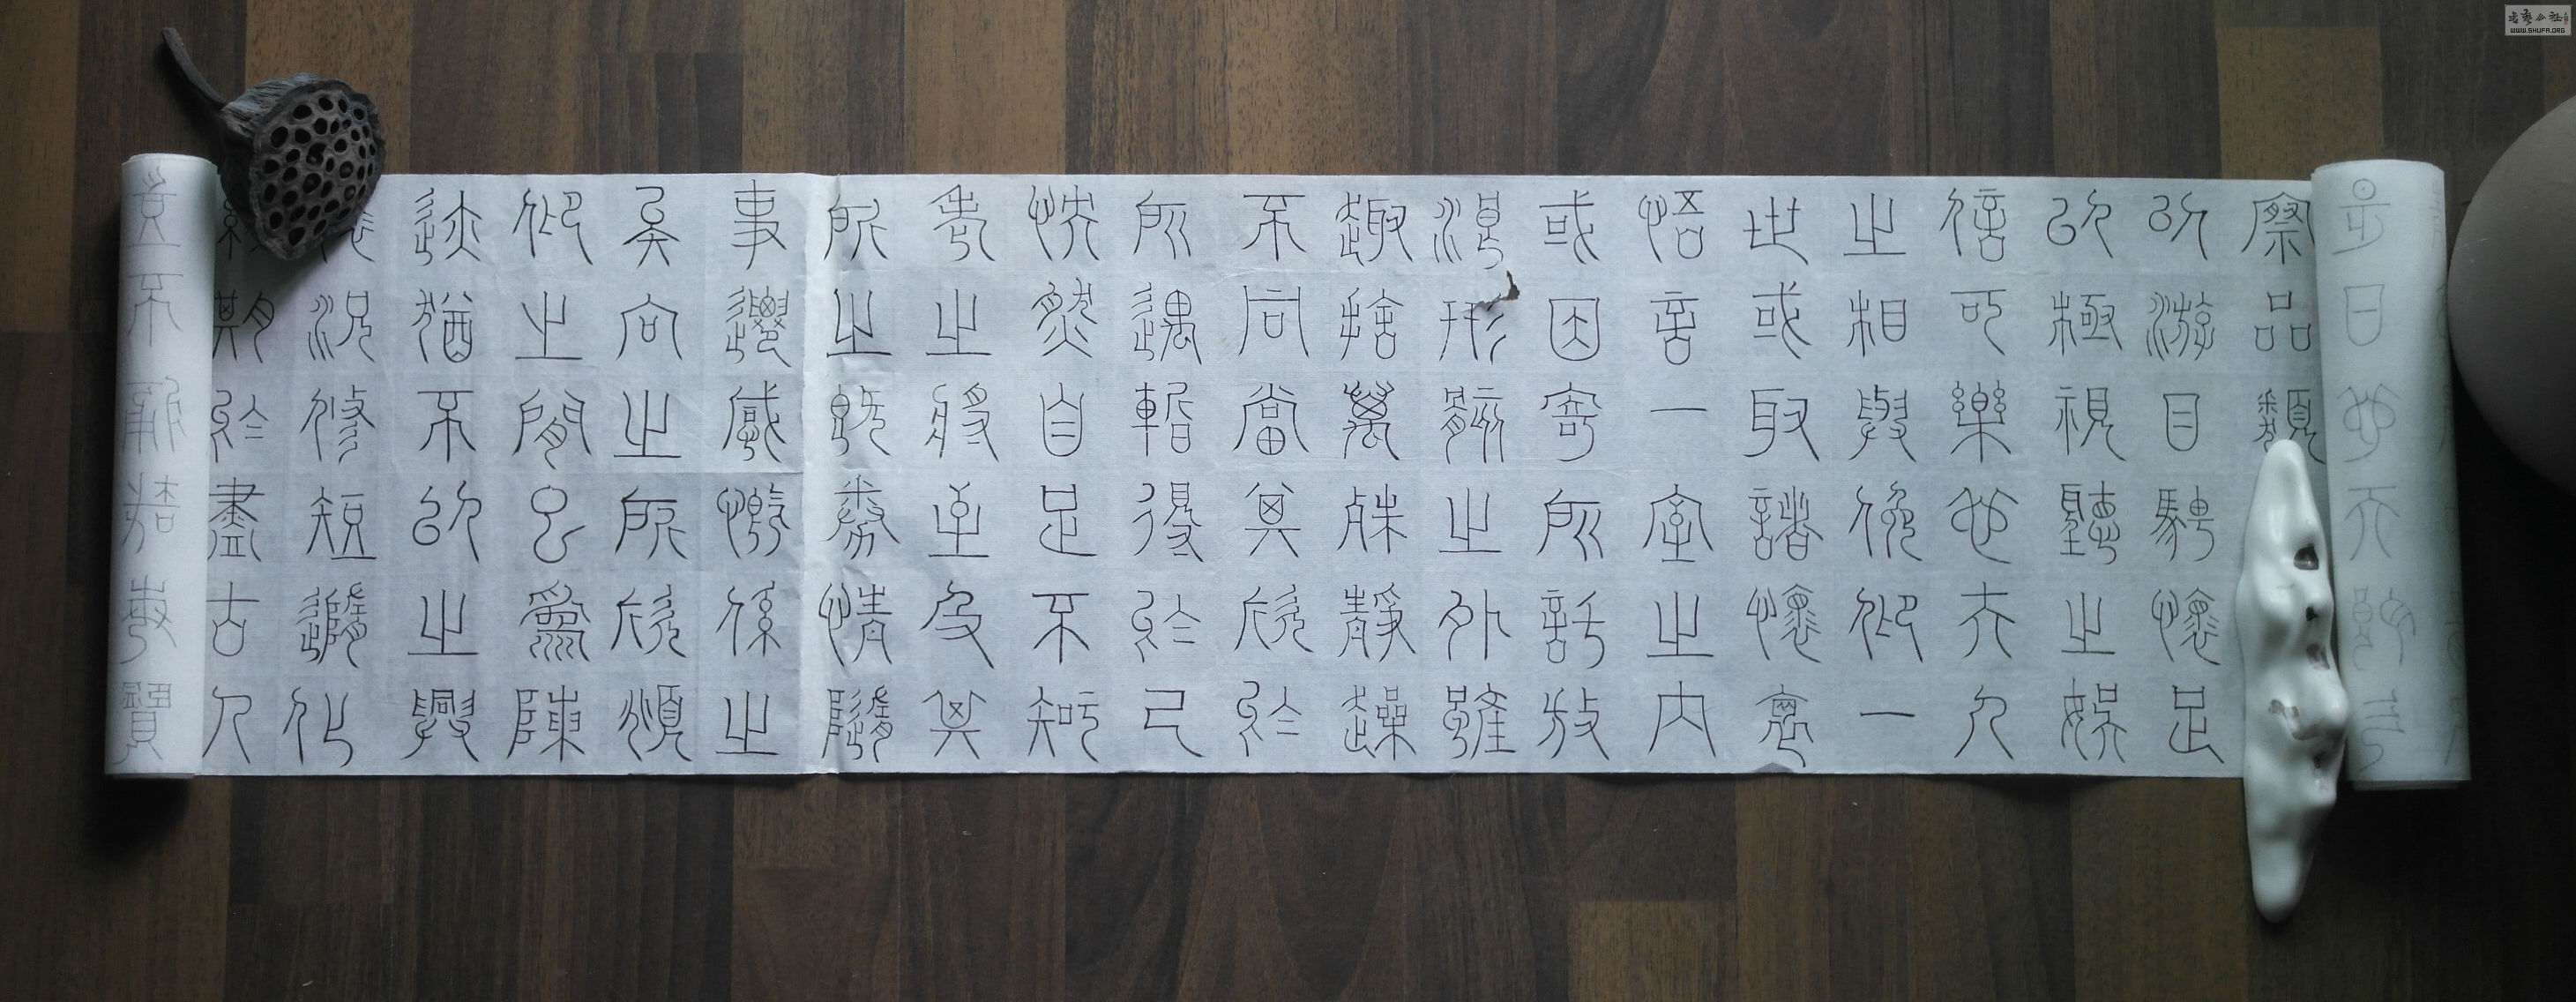 是日也天朗氣
察品類
以游目騁懷足
以極視聽之娛
信可樂也夫人
之相與俛仰一
世或取諸懷抱
悟言一室之內
或因寄所託放
浪形骸之外雖
趣捨萬殊靜躁
不同當其欣於
所遇暫得於己
怏然自足不知
老之將至及其
所之既倦情隨
事遷感慨係之
矣向之所欣頫
仰之間已為陳
迹猶不以之興
懷況修短隨化
終期於盡古人
豈不痛哉每覽
WWW.SHUFA.ORG